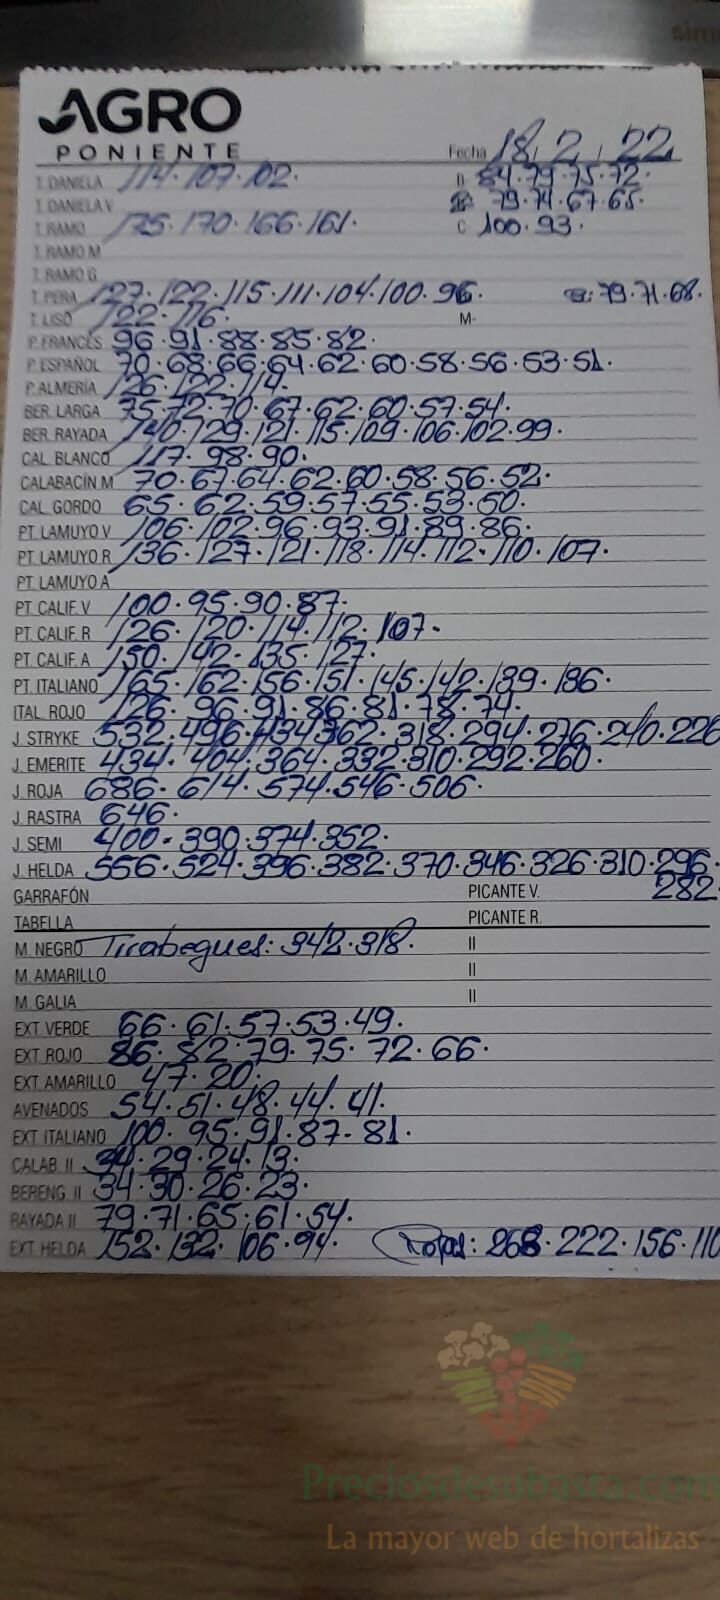 AGRO
PONIENTE
Fecha 18, 2, 22
T. DANELA 114·107·102· II 84·79·75·72·
T. DANELA V 79·74·67·65·
T. RAMO 175·170·166·161· C 100·93·
T. RAMO M
T. RAMO G
T. PERA 127·122·115·111·104·100·96· 79·71·68·
T. LISO 122·116· M-
P. FRANCÉS 96·91·88·85·82·
P. ESPAÑOL 70·68·66·64·62·60·58·56·53·51·
P. ALMERÍA 126·122·114·
BER. LARGA 75·72·70·67·62·60·57·54·
BER. RAYADA 140·129·121·115·109·106·102·99·
CAL. BLANCO 117·98·90·
CALABACÍN M 70·67·64·62·60·58·56·52·
CAL. GORDO 65·62·59·57·55·53·50·
PT. LAMUYO V 106·102·96·93·91·89·86·
PT. LAMUYO R 136·127·121·118·114·112·110·107·
PT. LAMUYO A
PT. CALIF. V 100·95·90·87·
PT. CALIF. R 126·120·114·112·107·
PT. CALIF. A 150·142·135·127·
PT. ITALIANO 165·162·156·151·145·142·139·136·
ITAL. ROJO 126·96·91·86·81·78·74·
J. STRYKE 532·496·434·362·318·294·276·240·226
J. EMERITE 434·404·364·332·310·292·260·
J. ROJA 686·614·574·546·506·
J. RASTRA 646·
J. SEMI 400·390·374·352·
J. HELDA 556·524·396·382·370·346·326·310·296·
GARRAFÓN PICANTE V. 282·
TABELLA PICANTE R.
M. NEGRO Tirabeques: 342·318· II
M. AMARILLO II
M. GALIA II
EXT VERDE 66·61·57·53·49·
EXT ROJO 86·82·79·75·72·66·
EXT AMARILLO 47·20·
AVENADOS 54·51·48·44·41·
EXT ITALIANO 100·95·91·87·81·
CALAB. II 34·29·24·13·
BERENG. II 34·30·26·23·
RAYADA II 79·71·65·61·54·
EXT. HELDA 152·132·106·94· Rojas: 268·222·156·110
Preciosdesubasta.com
La mayor web de hortalizas